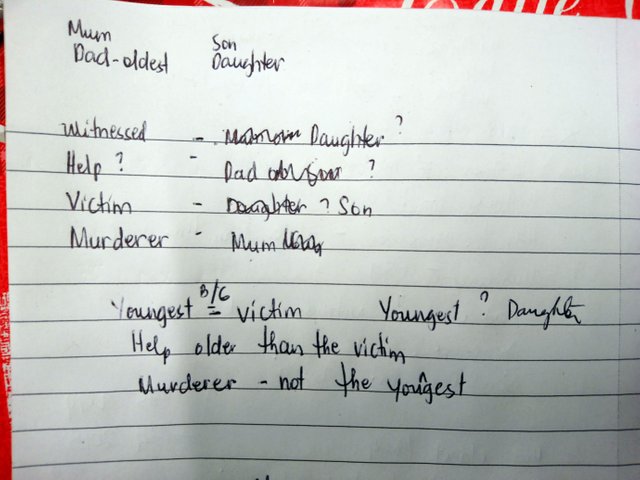 Mum
Son
Dad-oldest
Daughter
Witnessed - Daughter ?
Help ? - Dad ?
Victim - Daughter ? Son
Murderer - Mum
B/G
Youngest = victim Youngest ? Daughter
Help older than the victim
Murderer - not the yougest